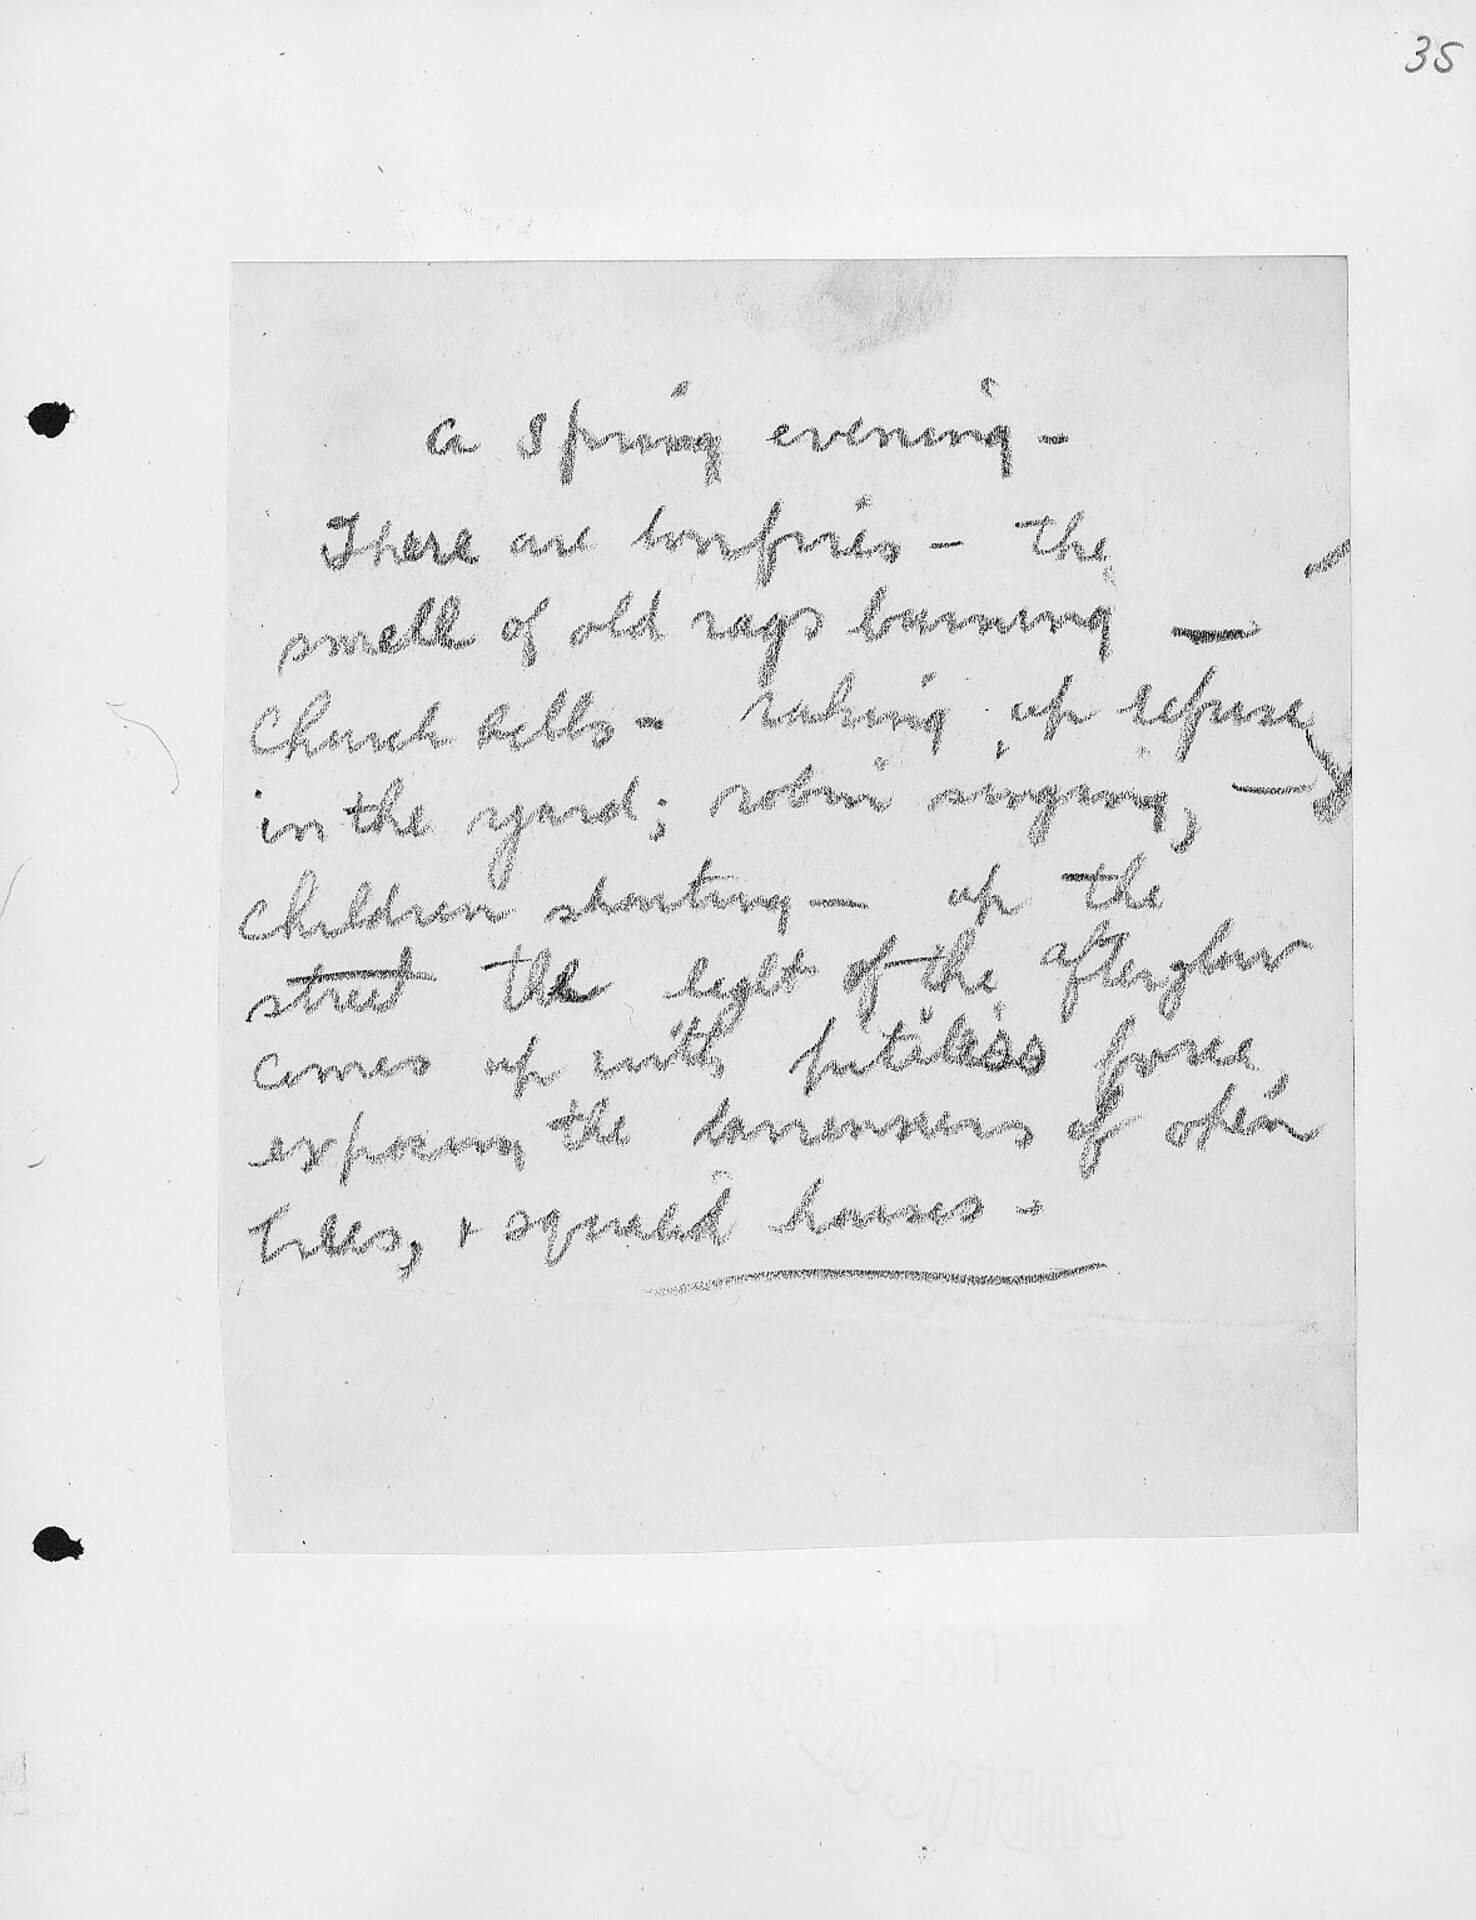 35
A Spring evening –
There are bonfires – the
smell of old rags burning —
Church bells – raking up refuse
in the yard; robin singing, —
children shouting — up the
street the light of the afterglow
comes up with pitiless force,
exposing the barrenness of open
trees, + squalid houses –